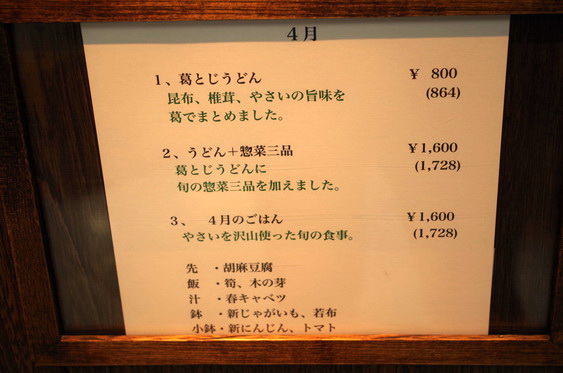 4月
1、葛とじうどん ¥ 800
昆布、椎茸、やさいの旨味を (864)
葛でまとめました。
2、うどん＋惣菜三品 ¥1,600
葛とじうどんに (1,728)
旬の惣菜三品を加えました。
3、 4月のごはん ¥1,600
やさいを沢山使った旬の食事。 (1,728)
先 ・胡麻豆腐
飯 ・筍、木の芽
汁 ・春キャベツ
鉢 ・新じゃがいも、若布
小鉢・新にんじん、トマト